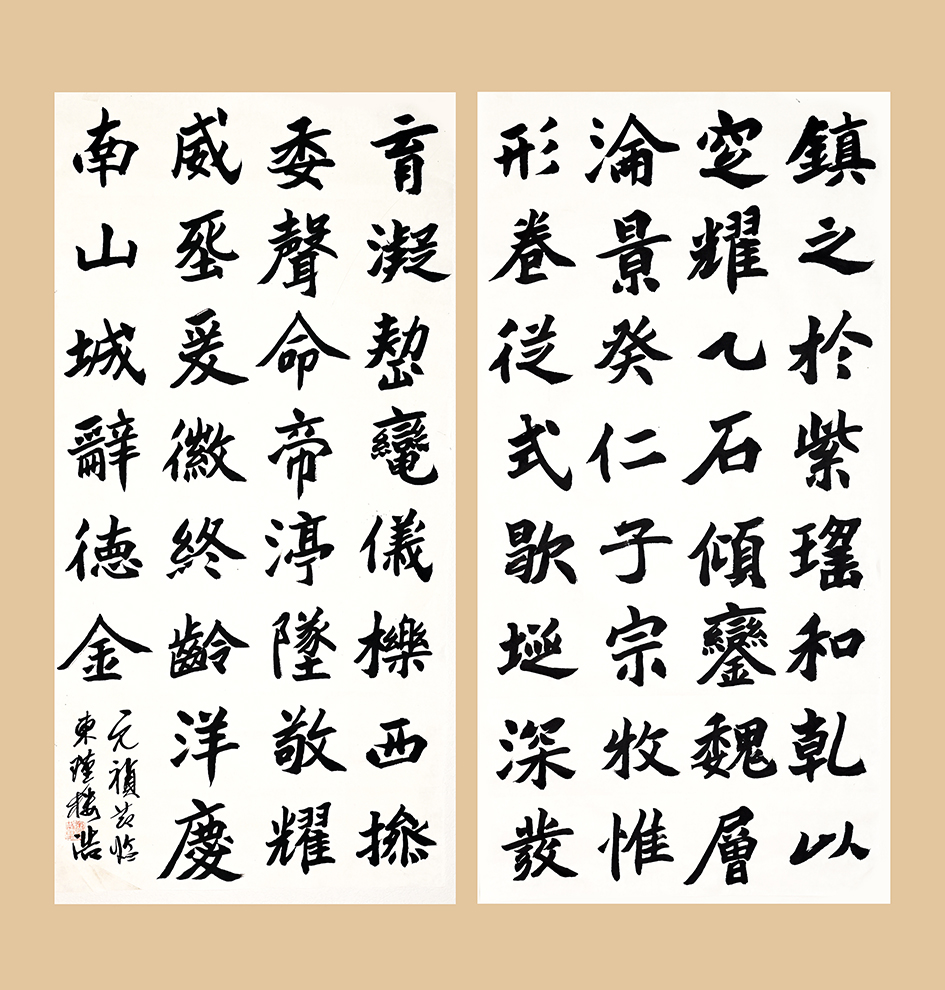 鎮之於紫瑤和乾以
窆耀乙石傾鑾魏層
淪景癸仁子宗牧惟
形卷從式歇埏深發
育凝儀櫟西摻
委聲命帝渟墜敬耀
威爰徽終齡洋慶
南山城辭德金
元禎臨
東樓浩